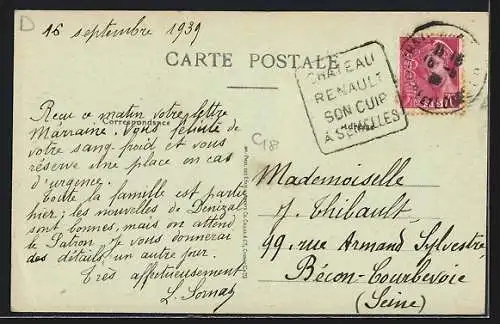 D
16 septembre 1939
CARTE POSTALE
CHATEAU
RENAULT
SON CUIR
A SEMELLES
Correspondance
C18
Reçu ce matin votre lettre
Marraine. Vous félicite de
votre sang-froid et vous
réserve une place en cas
d'urgence.
Toute la famille est partie
hier; les nouvelles de Denizal
sont bonnes, mais on attend
le Patron. Je vous donnerai
des détails un autre jour.
Très affectueusement
L. Sornas
Mademoiselle
J. Thibault
99, rue Armand Sylvestre
Bécon-Courbevoie
(Seine)